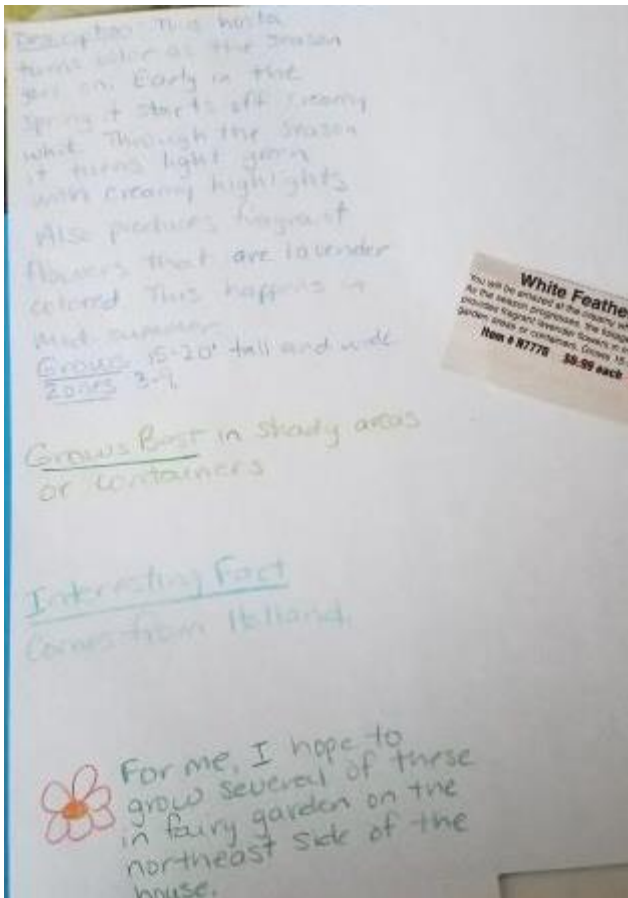 Description This hosta
turns color as the season
goes on. Early in the
spring it starts off creamy
white Through the season
it turns light green
with creamy highlights
Also produces fragrant
flowers that are lavender
colored This happens in
mid summer
Grows 15-20" tall and wide
Zones 3-9
Grows Best in shady areas
or containers
Interesting Fact
Comes from Holland.
For me, I hope to
grow several of these
in fairy garden on the
northeast side of the
house.
White Feathe
You will be amazed at the creamy wh
As the season progresses, the foliage
provides fragrant lavender flowers in m
garden areas or containers. Grows 15
Item # N7778 $8.99 each